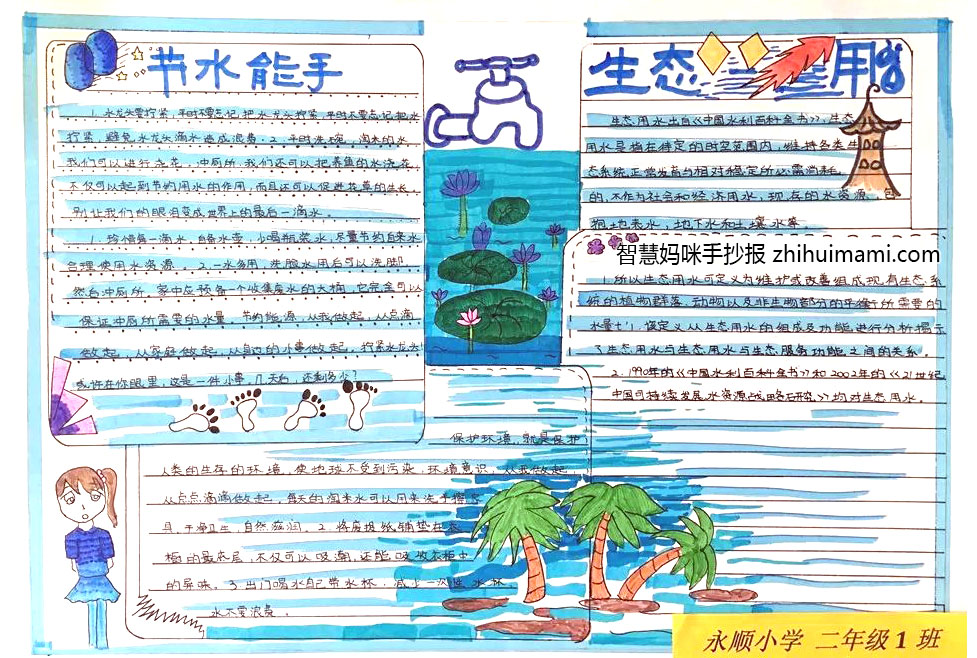 节水能手
1. 水龙头要拧紧,平时不要忘记把水龙头拧紧,平时不要忘记把水
拧紧,避免水龙头滴水造成浪费。2. 平时洗碗,淘米的水
我们可以进行浇花,冲厕所,我们还可以把养鱼的水浇花
不仅可以起到节约用水的作用,而且还可以促进花草的生长
别让我们的眼泪变成世界上的最后一滴水。
1. 珍惜每一滴水,自备水壶,少喝瓶装水,尽量节约自来水
合理使用水资源。2. 一水多用,洗脸水用后可以洗脚,
然后冲厕所,家中应预备一个收集废水的大桶,它完全可以
保证冲厕所需要的水量,节约能源,从我做起,从点滴
做起,从家庭做起,从自己的小事做起,拧紧水龙头!
或许在你眼里,这是一件小事,几天后,还剩多少?
生态用
生态用水出自《中国水利百科全书》,生态
用水是指在特定的时空范围内,维持各类生
态系统正常发育与相对稳定所必需消耗
的,不作为社会和经济用水,现存的水资源,包
括地表水,地下水和土壤水等。
智慧妈咪手抄报 zhihuimami.com
1. 所以生态用水可定义为维护或改善组成现有生态系
统的植物群落,动物以及非生物部分的平衡所需要的
水量",该定义从生态用水的组成及功能进行分析揭示
了生态用水与生态用水与生态服务功能之间的关系。
2. 1990年的《中国水利百科全书》和2002年的《21世纪
中国可持续发展水资源战略研究》均对生态用水。
保护环境,就是保护
人类的生存的环境,使地球不受到污染,环境意识,从我做起,
从点点滴滴做起,每天的淘米水可以用来洗手擦
具,干净卫生,自然滋润。2. 将废报纸铺垫在衣
橱的最底层,不仅可以吸潮,还能吸收衣柜中
的异味。3. 出门喝水自己带水杯,减少一次性水杯,
水不要浪费。
永顺小学 二年级1班